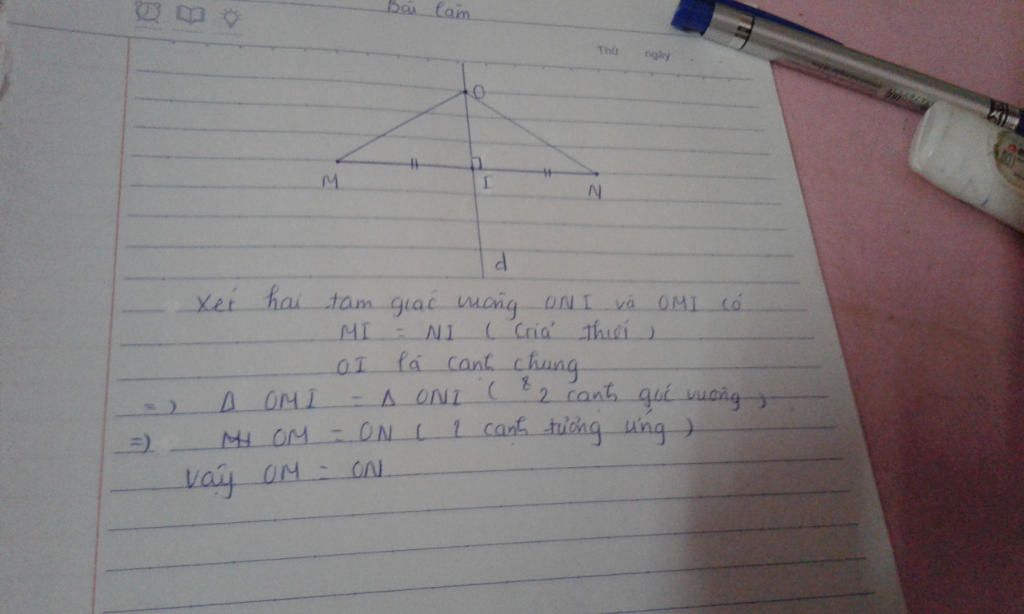 Bài làm
Thứ ngày
O
M
I
N
d
Xét hai tam giác vuông ONI và OMI có
MI = NI ( Giả thiết )
OI là cạnh chung
=) Δ OMI = Δ ONI ( 2 cạnh góc vuông )
=) OM = ON ( 2 cạnh tưởng ứng )
Vậy OM = ON